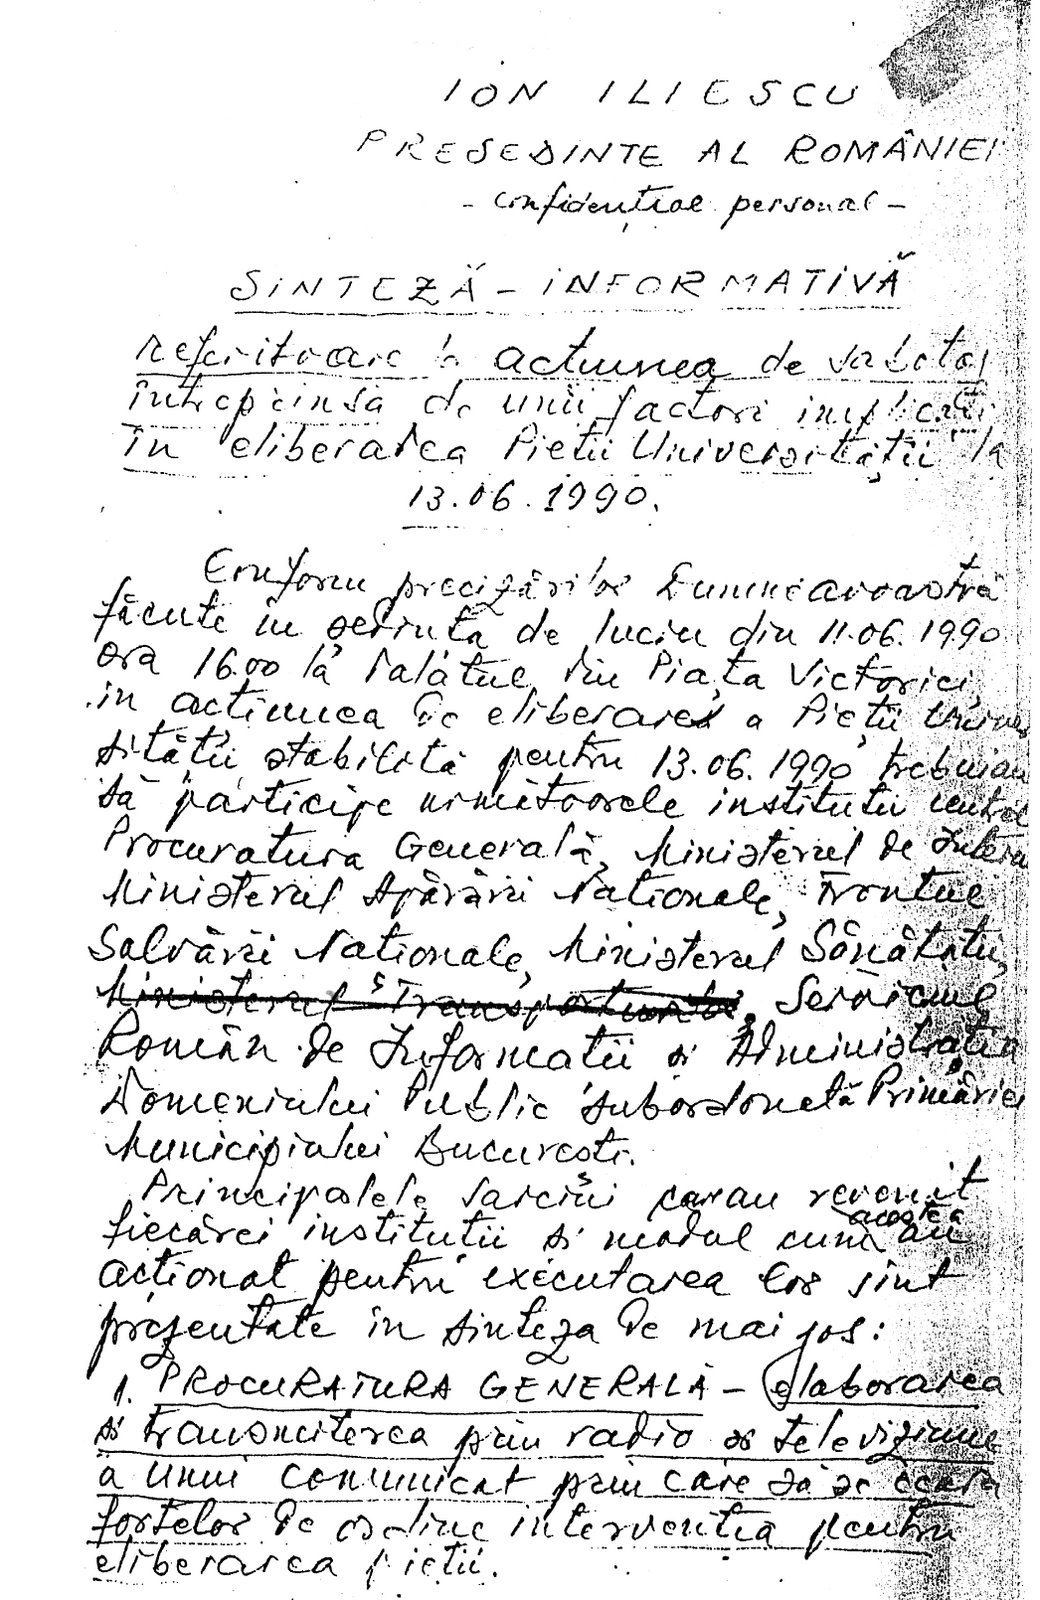 ION ILIESCU
PREȘEDINTE AL ROMÂNIEI
- confidențial personal -
SINTEZĂ - INFORMATIVĂ
referitoare la acțiunea de sabotaj
întreprinsă de unii factori implicați
în eliberarea Pieții Universității la
13.06.1990.
Conform precizărilor Dumneavoastră
făcute în ședința de luni din 11.06.1990
ora 16.00 la Palatul din Piața Victoriei,
în acțiunea de eliberarea a Pieții Univer
sității, stabilită pentru 13.06.1990 trebuiau
să participe următoarele instituții centrale
Procuratura Generală, Ministerul de Intern
Ministerul Apărării Naționale, Frontul
Salvării Naționale, Ministerul Sănătății,
Ministerul Transporturilor, Serviciul
Român de Informații și Administrația
Domeniului Public subordonată Primăriei
Municipiului București.
Principalele sarcini care au revenit
fiecărei instituții și modul cum acestea au
acționat pentru executarea lor sînt
prezentate în sinteza de mai jos:
1. PROCURATURA GENERALĂ - elaborarea
și transmiterea prin radio și televiziune
a unui comunicat prin care să se ceară
forțelor de ordine intervenția pentru
eliberarea pieții.